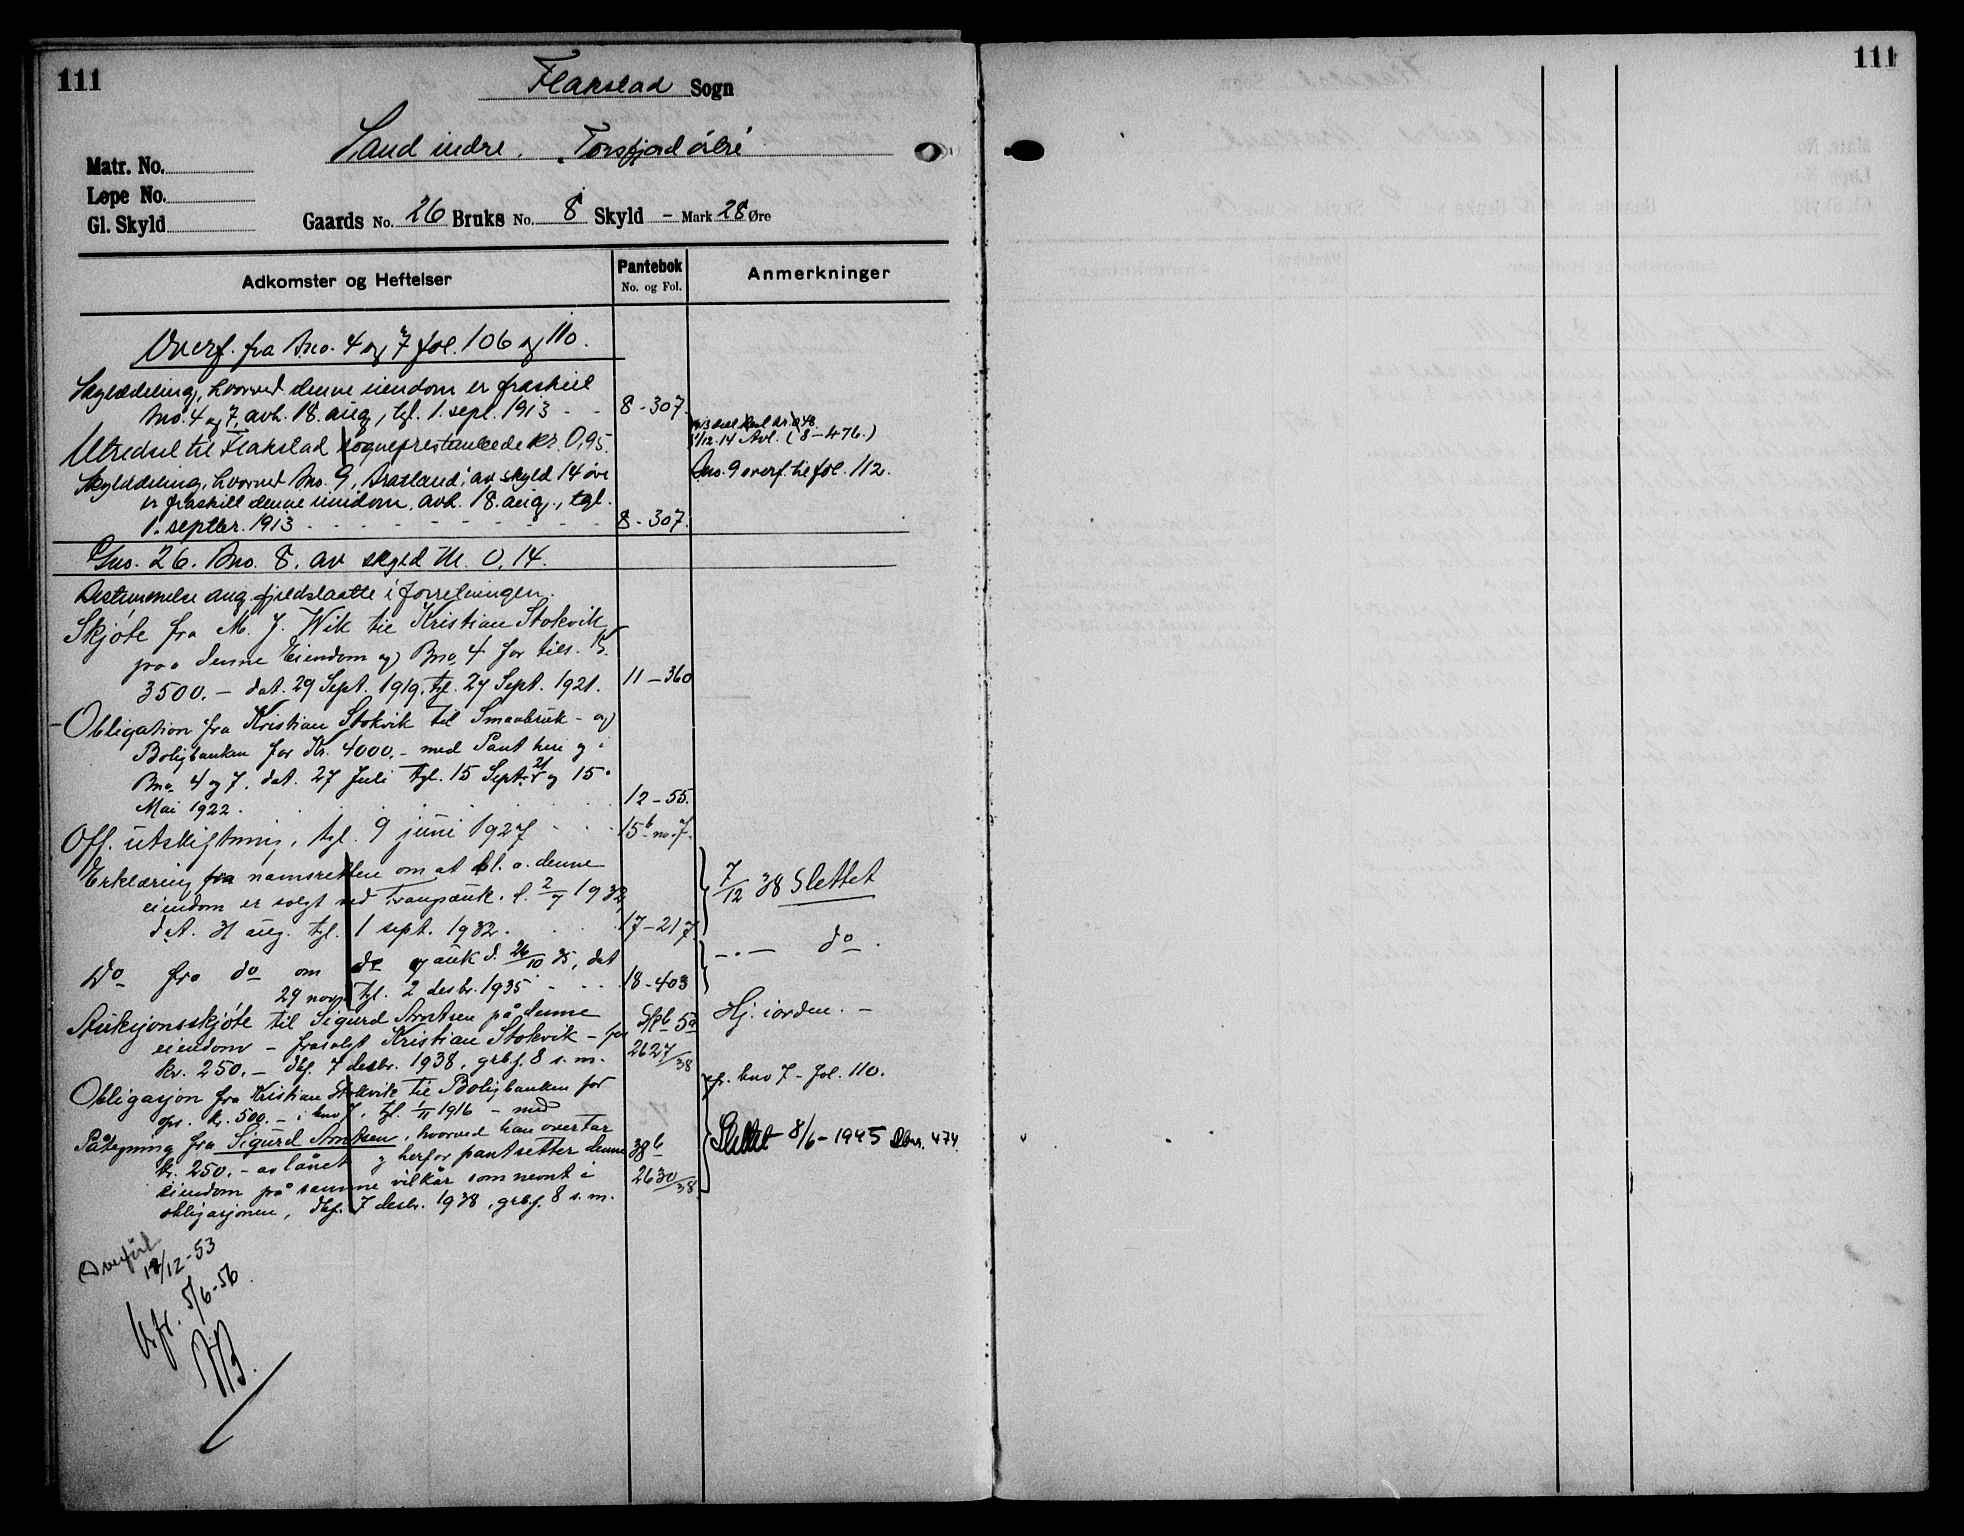 111
Flakstad Sogn
111
Sand indre. "Torsfjord östre"
Matr. No.
Løpe No.
Gl. Skyld
Gaards No. 26 Bruks No. 8 Skyld - Mark 28 Øre
Adkomster og Heftelser
Pantebok
No. og Fol.
Anmerkninger
Overf. fra Bno. 4 og 7 fol. 106 og 110.
Skylddeling, hvorved denne eiendom er fraskilt
Bno. 4 og 7, avh. 18. aug., tgl. 1. sept. 1913 - - 8 - 307.
Utredsel til Flakstad sogneprestembede kr. 0,95.
1/12.14 Avl. (8-476.)
Skylddeling, hvorved Bno. 9, av skyld 14 øre
Bno. 9 overf. til fol. 112.
er fraskilt denne eiendom, avh. 18. aug., tgl.
1. septbr. 1913 - - - - - - - - 8 - 307.
Gno. 26. Bno. 8. av skyld M. 0,14.
Bestemmelse ang. gjerdeslaatte i forretningen.
Skjöte fra M. J. Wik til Kristian Stokvik
paa denne Eiendom og Bno. 4 for tils. Kr.
3500.- dat. 29 Sept. 1919, tgl. 27 Sept. 1921. 11-360
- Obligation fra Kristian Stokvik til Smaabruk- og
Boligbanken for Kr. 4000.- med Pant heri og i
Bno. 4 og 7. dat. 27 Juli tgl. 15 Septr. 21 og 15.
Mai 1922. 12-55.
Off. utskiftning, tgl. 9 juni 1927 15b no. 7.
Erklæring fra namsretten om at bl. a. denne
eiendom er solgt ved Tvangsauk. d. 2/7 1932,
7/12 38 Slettet
dat. 31 aug. tgl. 1 sept. 1932. 17-217.
Do fra do om do og auk d. 26/10 35, dat
-.- do.
29 novbr. tgl. 2 desbr. 1935 - - - 18-403
Auksjonsskjöte til Sigurd Arntsen på denne
Spb 5a
Hj. i orden. -
eiendom - frasolgt Kristian Stokvik - for
kr. 250.- dbf. 7 desbr. 1938, grbf. 8 s. m.
2627/38
Obligasjon fra Kristian Stokvik til Boligbanken for
cfr. bno 7 - fol. 110.
opr. kr. 500.- i bno 7, tgl. 1/11 1916 - med
Påtegning fra Sigurd Arntsen, hvorved han overtar
38b
Slettet 8/6-1945 Dbnr. 474.
kr. 250.- av lånet og herfor pantsetter denne
eiendom på samme vilkår som nevnt i
2630/38
obligasjonen, dbf. 7 desbr. 1938, grbf. 8 s. m.
Overfört
18/12-53
5/6-56